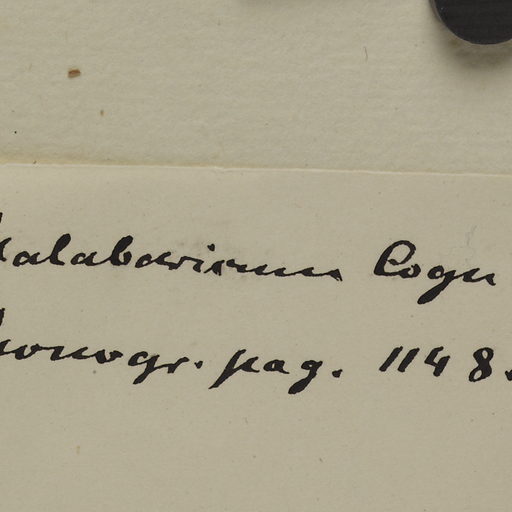 Malabaricum Cogn
Monogr. pag. 1148.